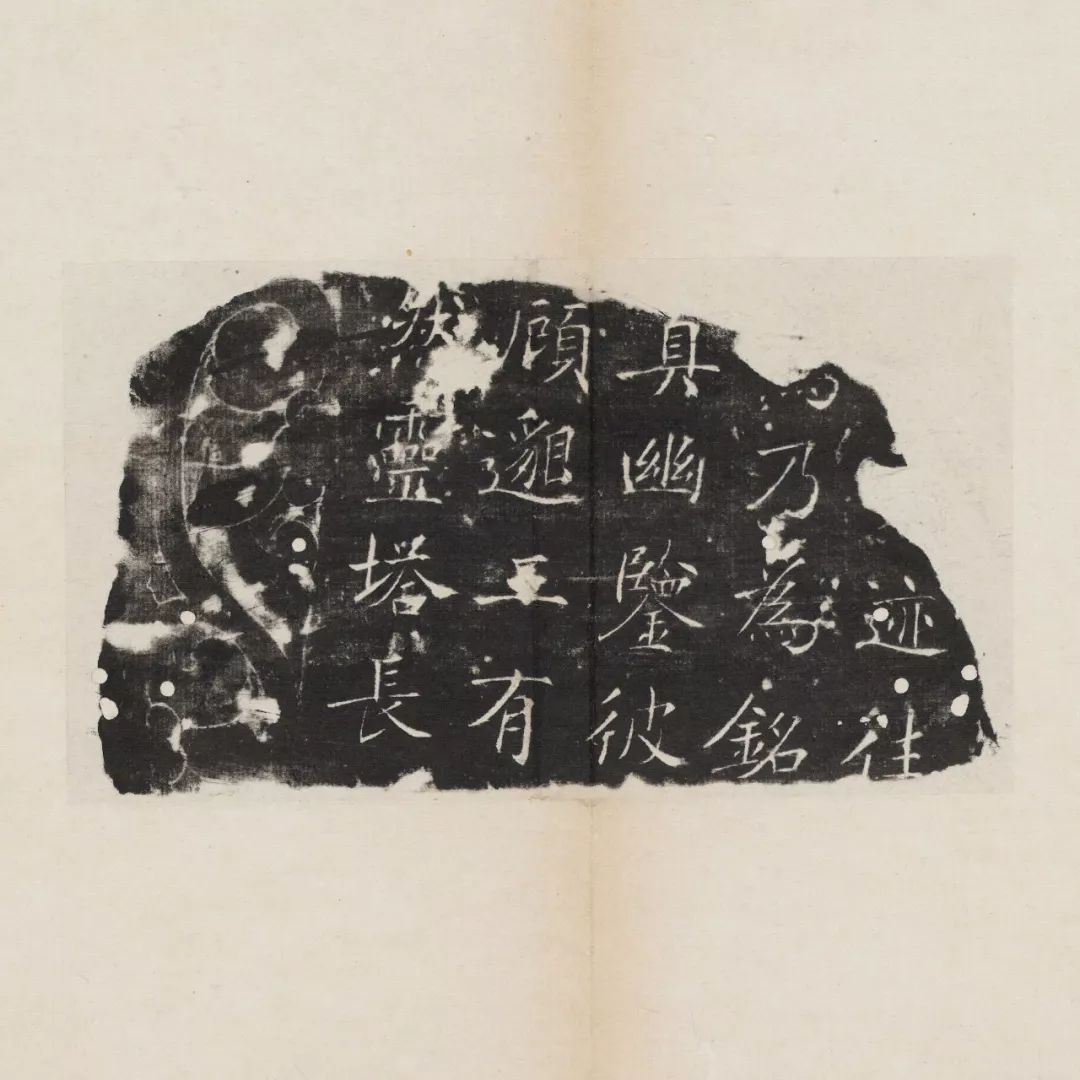 迹往
乃為銘
具幽鑒彼
顧邈王有
然靈塔長